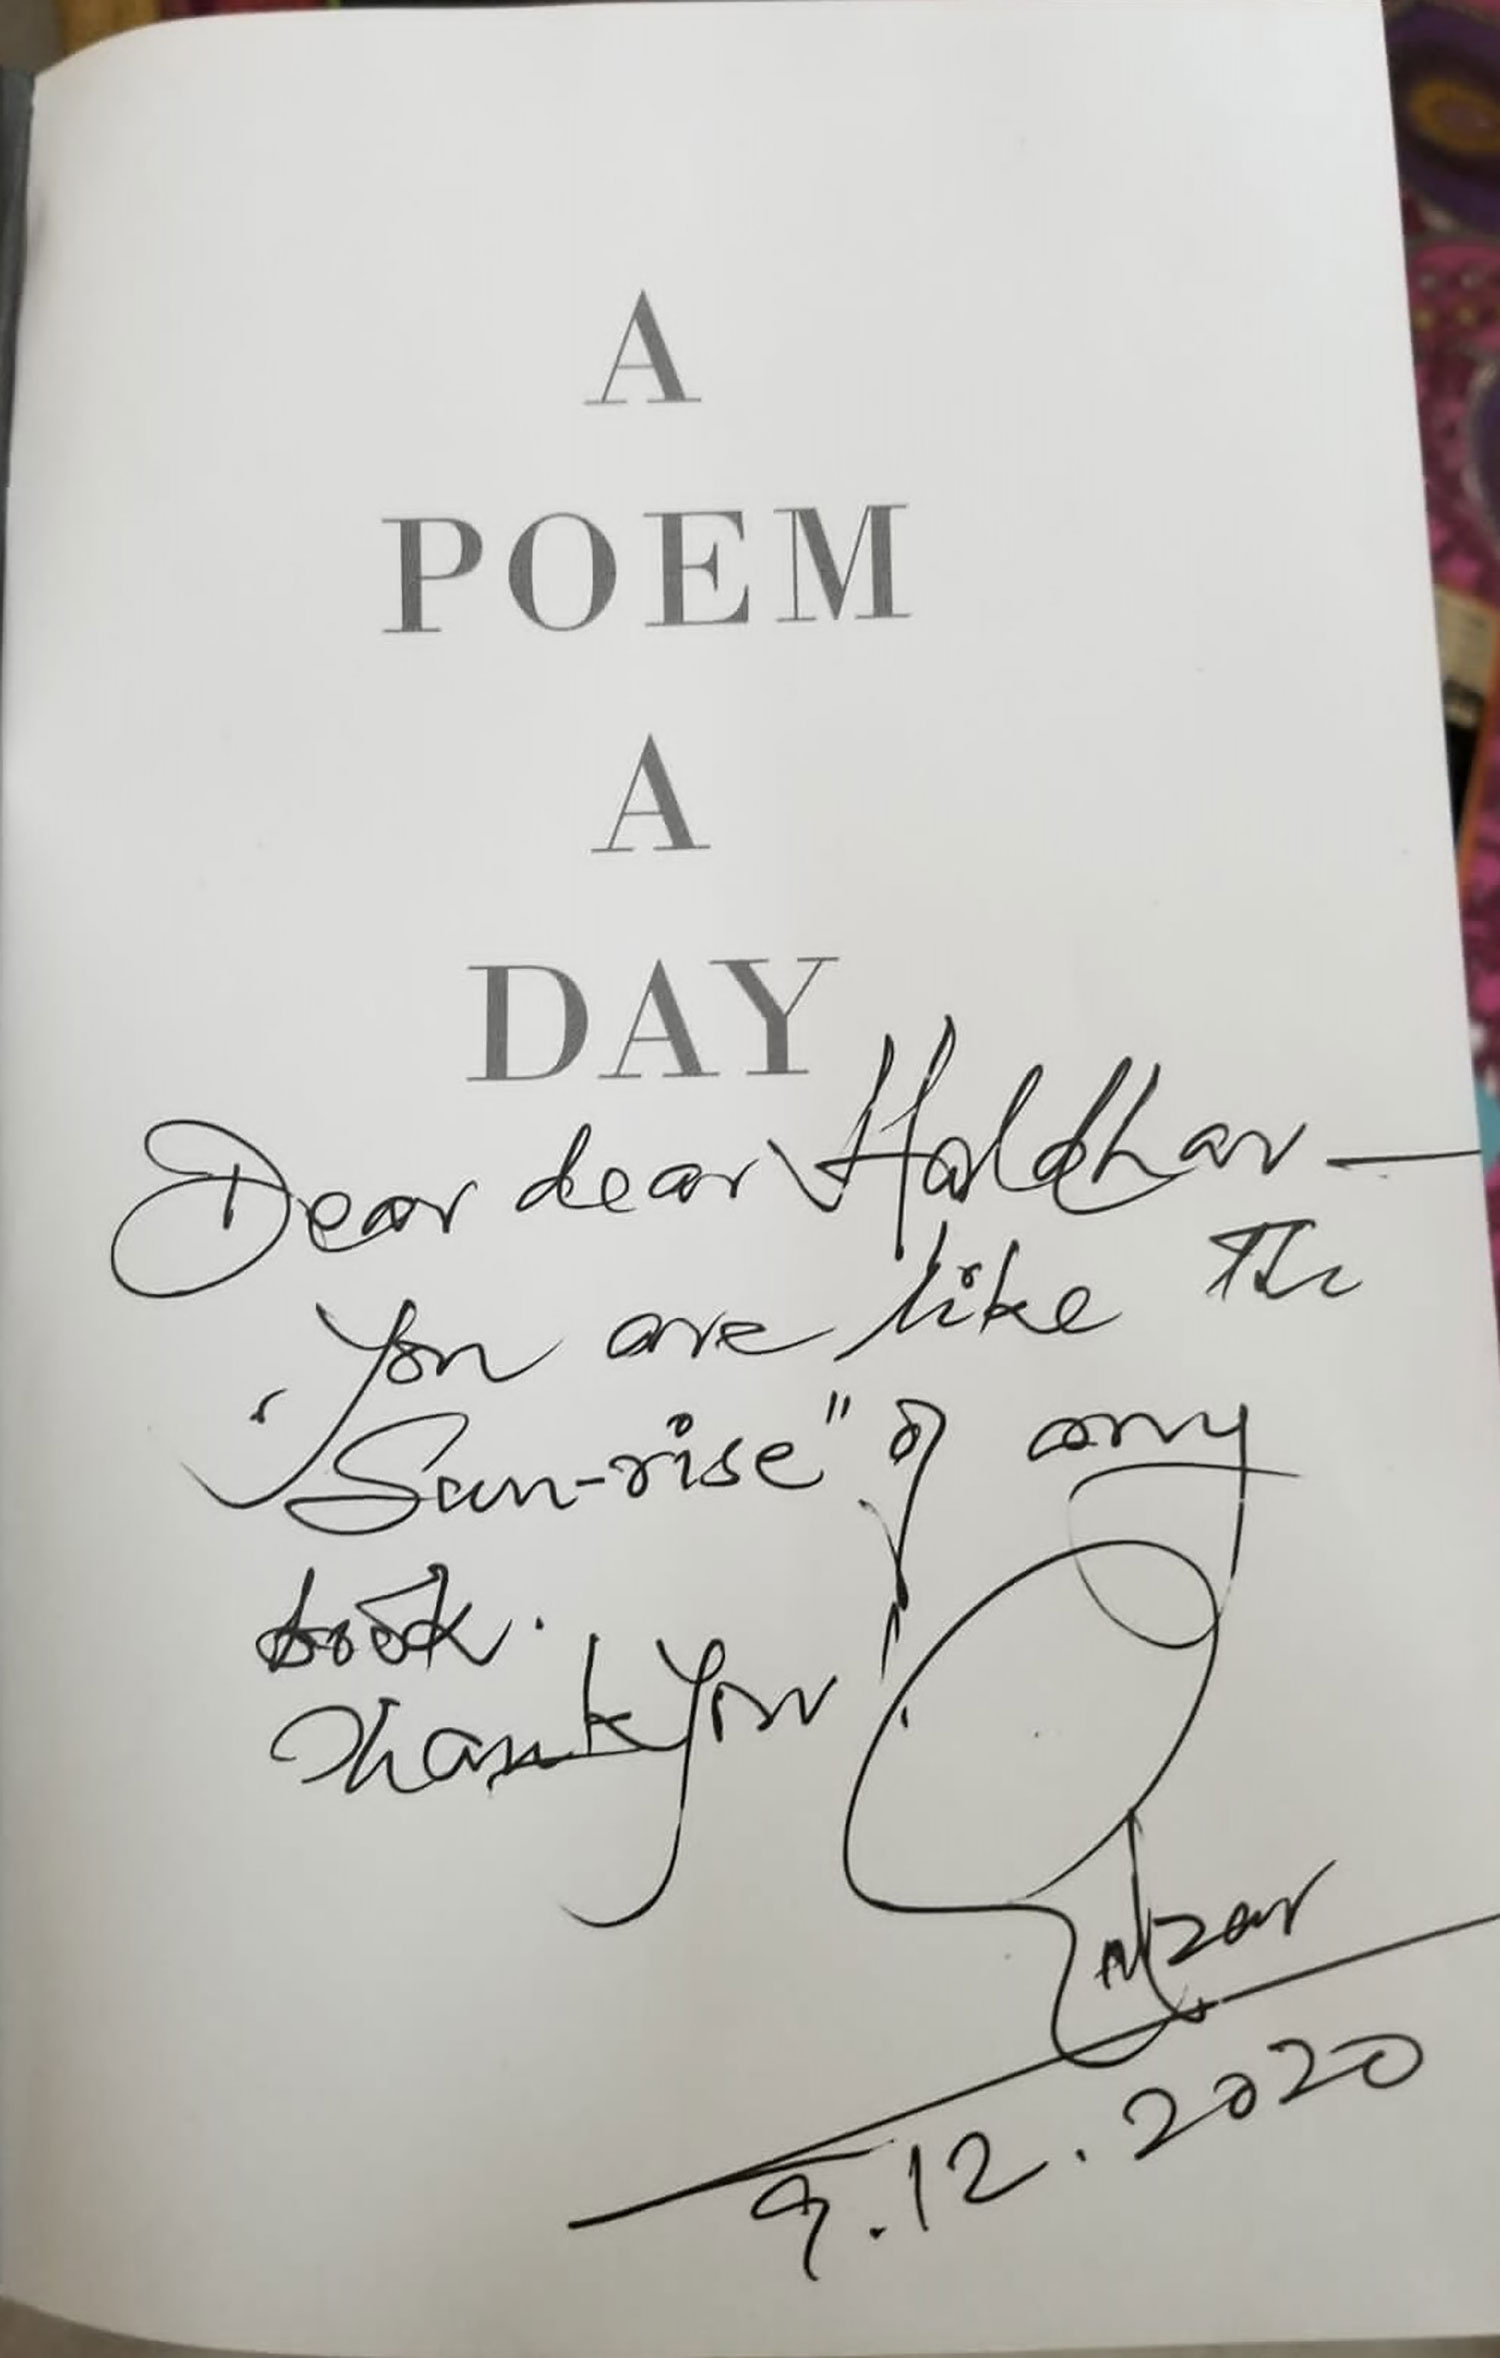 A
POEM
A
DAY
Dear dear Haldhar —
You are like the
"Sun-rise" of any
book.
Thank You
Gulzar
9.12.2020